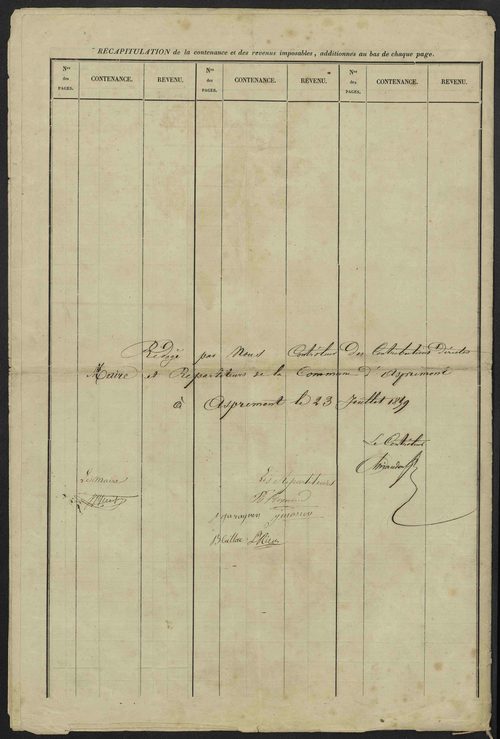 RÉCAPITULATION de la contenance et des revenus imposables, additionnés au bas de chaque page.
Nos des PAGES. CONTENANCE. REVENU. Nos des PAGES. CONTENANCE. REVENU. Nos des PAGES. CONTENANCE. REVENU.
Rédigé par Nous Contrôleur des Contributions Directes
Maire et Repartiteurs de la Commune d'Aspremont
à Aspremont le 23 Juillet 18
Le Contrôleur
Le Maire Les répartiteurs